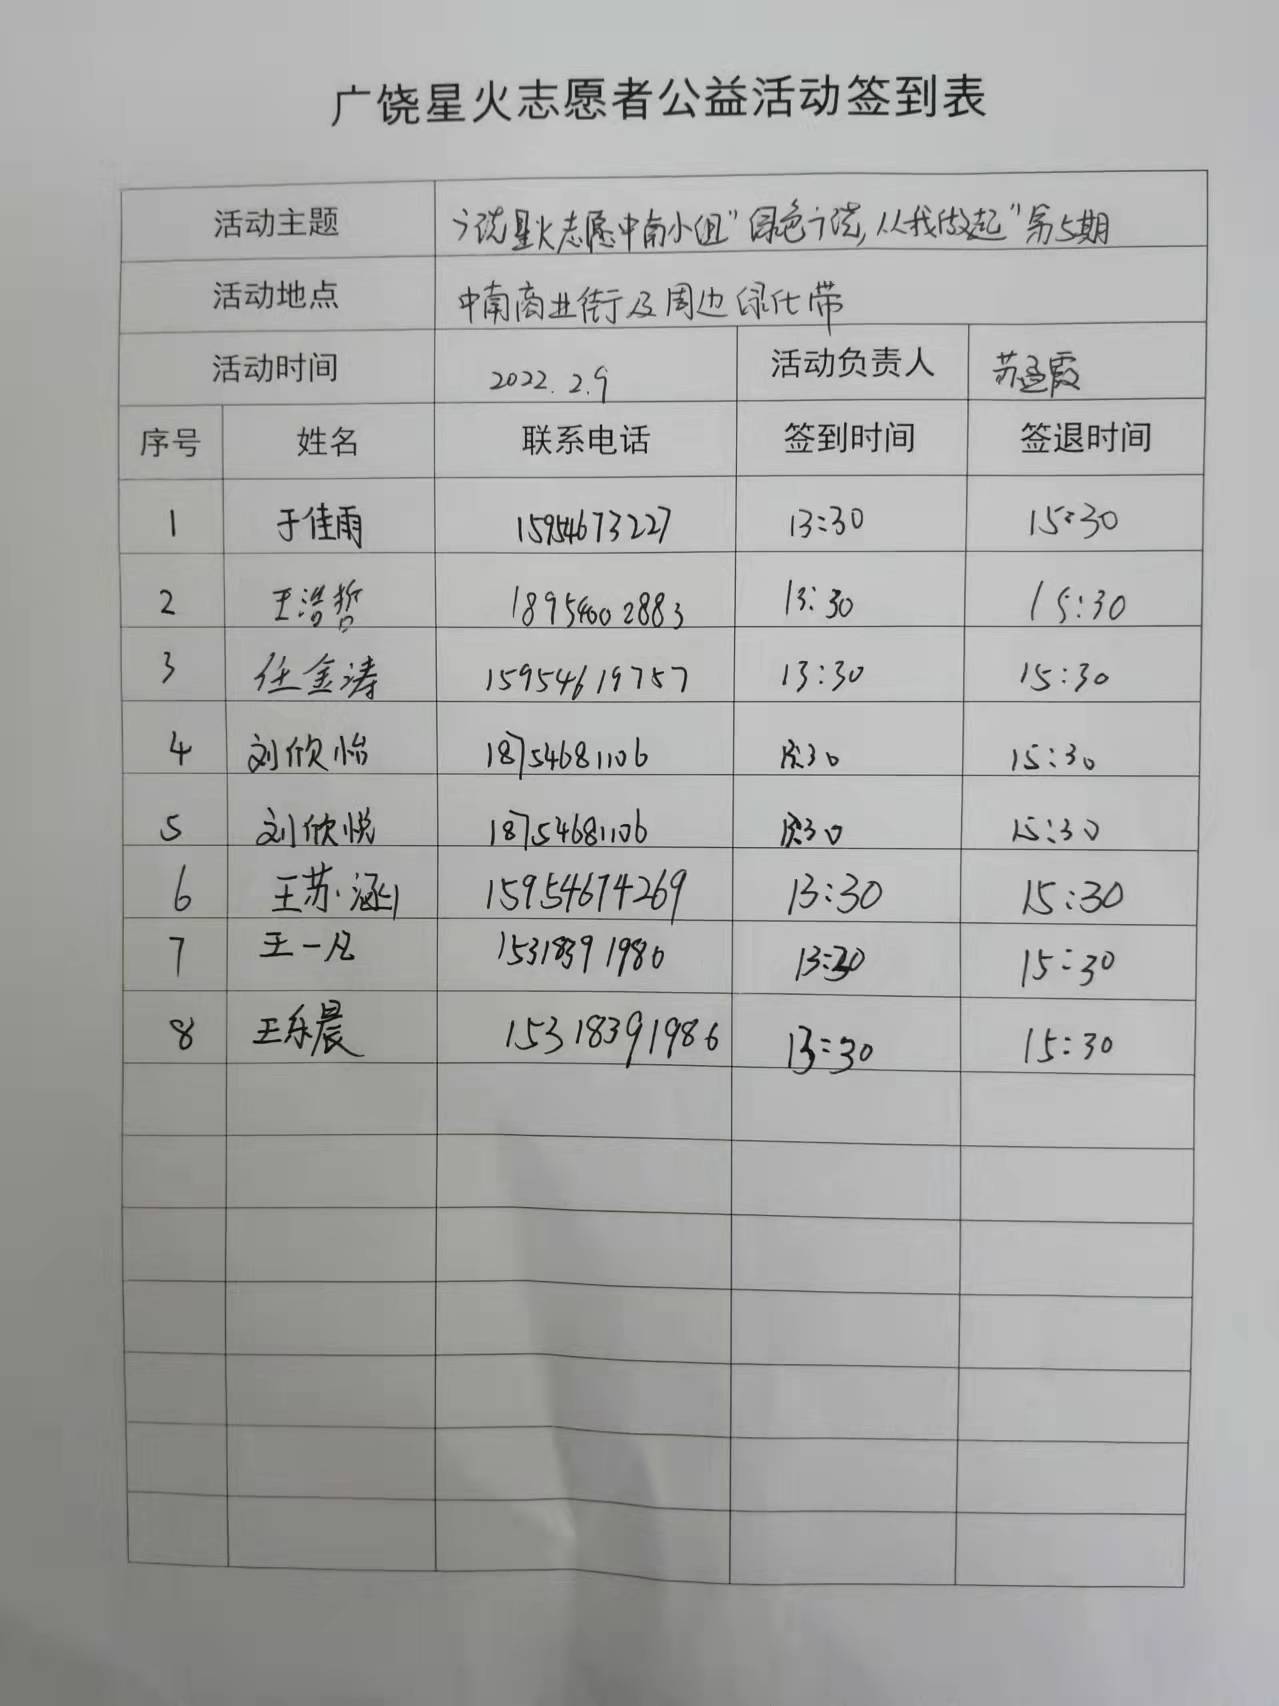 广饶星火志愿者公益活动签到表
活动主题 广饶星火志愿中南小组"绿色广饶,从我做起"第5期
活动地点 中南商业街及周边绿化带
活动时间 2022.2.9 活动负责人 苏孟霞
序号 姓名 联系电话 签到时间 签退时间
1 于佳雨 15954673227 13:30 15:30
2 王浩哲 18954002883 13:30 15:30
3 任金涛 15954619757 13:30 15:30
4 刘欣怡 18754681106 13:30 15:30
5 刘欣悦 18754681106 13:30 15:30
6 王苏涵 15954674269 13:30 15:30
7 王一凡 15318391986 13:30 15:30
8 王乐晨 15318391986 13:30 15:30